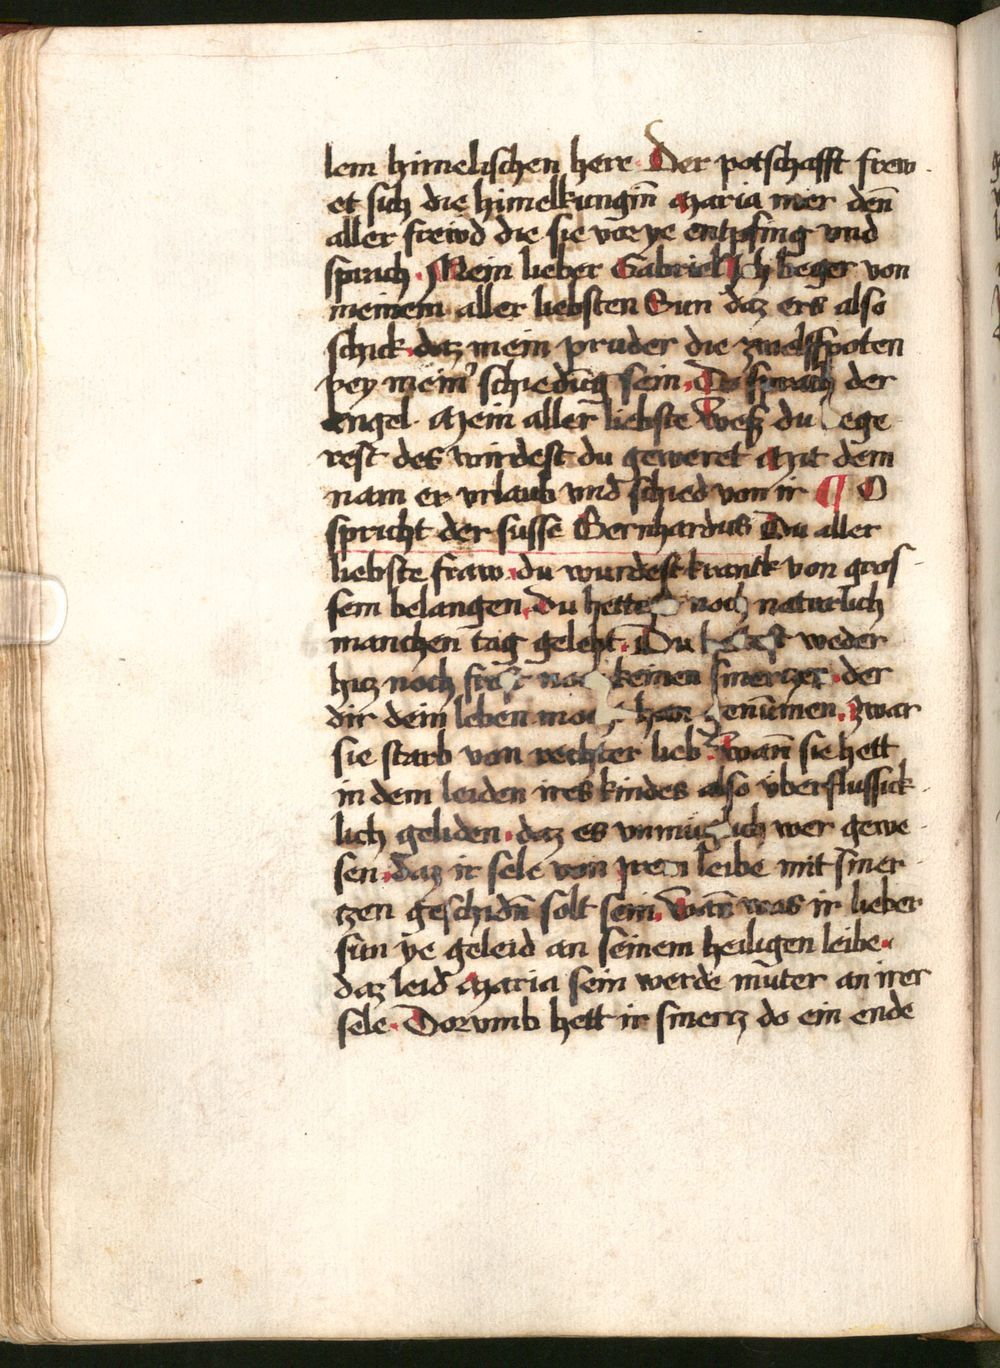 lem himelischen here Der potschafft frew
et sich die himelkungin̄ Maria mer den̄
aller frewd die sie vor ye entpfing vnd
sprach. Mein lieber Gabriel Ich beger von
meinem aller liebsten Sun daz ers also
schick daz mein pruder die zwelffpoten
pey meiner schiedūg sein. Do sprach der
engel. Mein aller liebste wesz du ege
rest des wirdest du geweret Mit dem
nam er vrlaub vnd schied von ir ¶ O
spricht der susse Bernhardus Du aller
liebste fraw. du wurdest kranck von gros
sem belangen. Du hette noch naturlich
manchen tag gelebt. Du weder
hiz noch noch keinen smerczer. der
dir dein leben han genūmen. Zwar
sie starb von rechter lieb. wan̄ sie hett
in dem leiden ires kindes also vberflussick
lich geliden. daz es vnmuglich wer gewe
sen. daz ir sele von irem leibe mit smer
tzen geschidn̄ solt sein. Wan̄ was ir lieber
sun ye geleid an seinem heiligen leibe.
daz leid Maria sein werde muter an irer
sele. Dorvmb hett ir smercz do ein ende